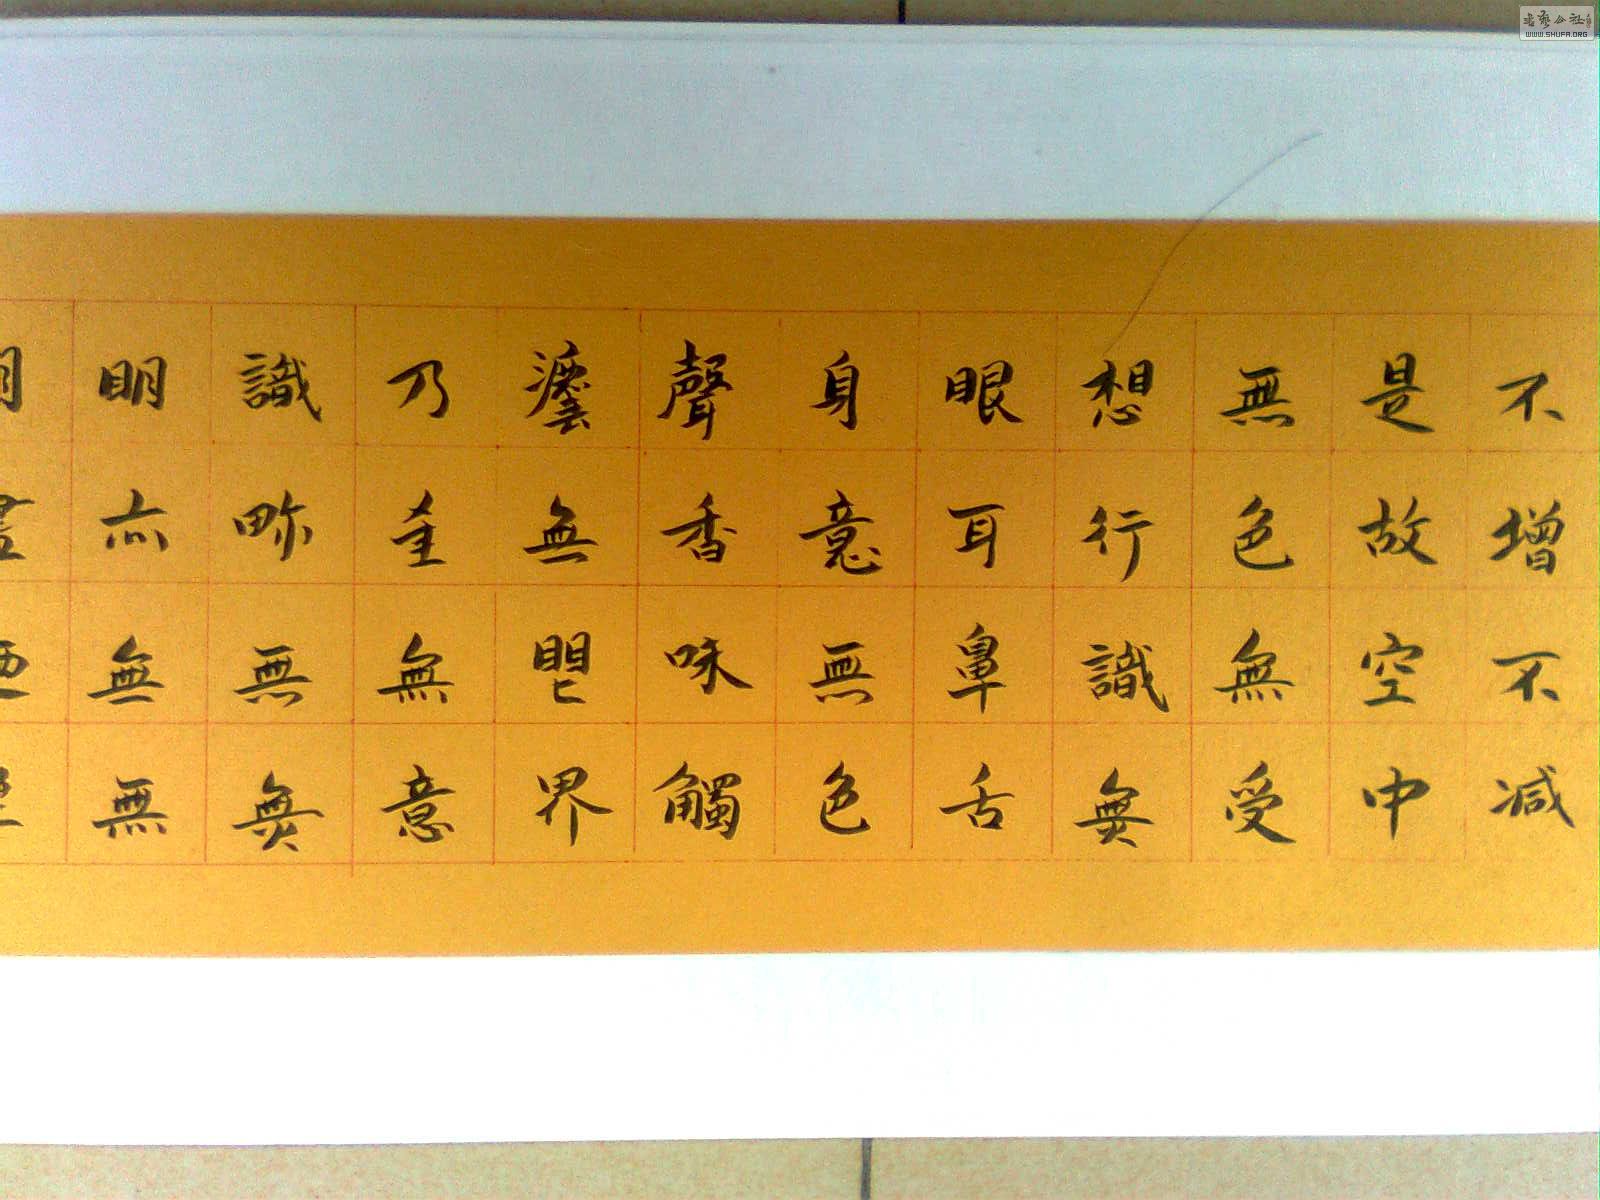 不增不减
是故空中
無色無受
想行識無
眼耳鼻舌
身意無色
聲香味觸
灋無眼界
乃至無意
識畍無無
明亦無無
書藝公社
WWW.SHUFA.ORG